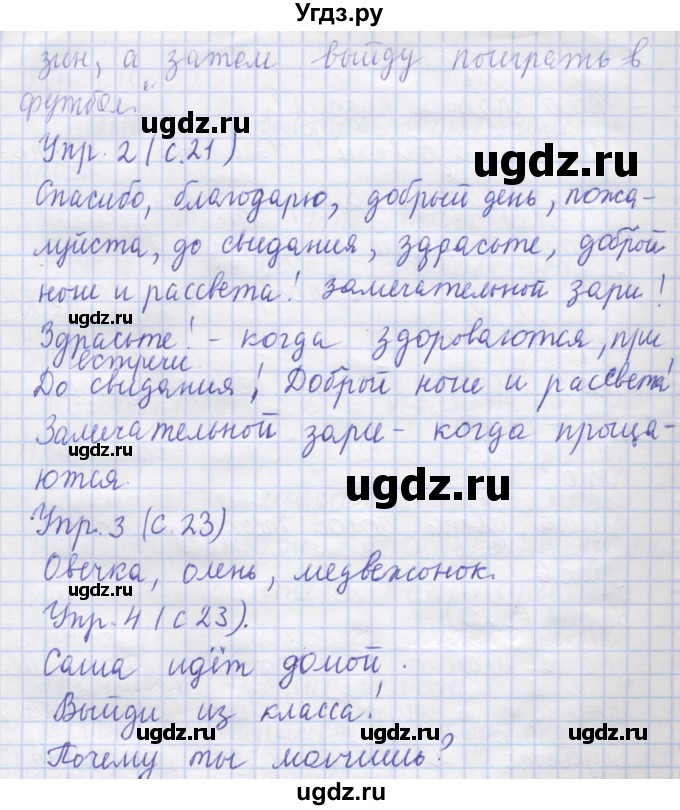 Угдз.ру
зин, а затем выйду поиграть в
футбол."
ugdz.ru
ugdz.ru
Упр. 2 (с.21)
ugdz.ru
Спасибо, благодарю, добрый день, пожа-
луйста, до свидания, здрасьте, доброй
ugdz.ru
ugdz.ru
ночи и рассвета! Замечательной зари!
ugdz.ru
Здрасьте! - когда здороваются, при
встречи
До свидания! Доброй ночи и рассвета!
ugdz.ru
Замечательной зари - когда проща-
ugdz.ru
ugdz.ru
ются.
ugdz.ru
Упр. 3 (с.23)
ugdz.ru
Овечка, олень, медвежонок.
ugdz.ru
Упр. 4 (с 23).
ugdz.ru
Саша идёт домой.
ugdz.ru
Выйди из класса!
ugdz.ru
ugdz.ru
Почему ты молчишь?
ugdz.ru
ugdz.ru